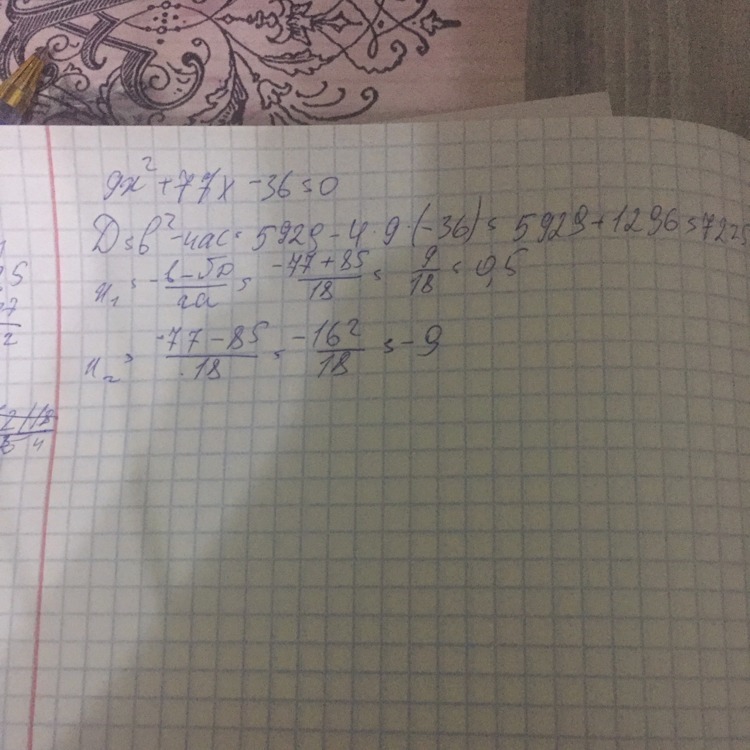 9x² + 77x - 36 = 0
D = b² - 4ac = 5929 - 4 · 9 · (-36) = 5929 + 1296 = 7225
x₁ = -b - √D / 2a = -77 + 85 / 18 = 9 / 18 = 0,5
x₂ = -77 - 85 / 18 = -162 / 18 = -9